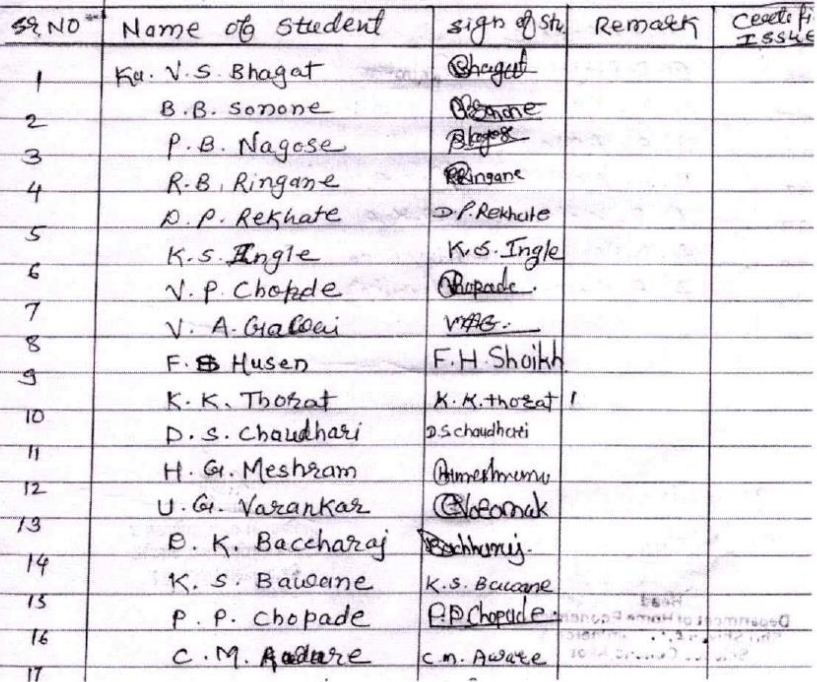 SR NO Name of Student sign of Stu Remark Certefi ISSUE
1 Ku. V. S. Bhagat Bhagat
2 B. B. Sonone Sonone
3 P. B. Nagose Nagose
4 R. B. Ringane Ringane
5 D. P. Rekhate D. P. Rekhate
6 K. S. Ingle K. S. Ingle
7 V. P. Chopde Chopade.
8 V. A. Gawai VAG.
9 F. S Husen F. H. Shaikh
10 K. K. Thorat K. K. thorat
11 D. S. Chaudhari D. S chaudhari
12 H. G. Meshram
13 U. G. Varankar
14 D. K. Baccharaj
15 K. S. Bawane K. S. Bawane
16 P. P. Chopade P. P. Chopade
17 C. M. Aware C. M. Aware